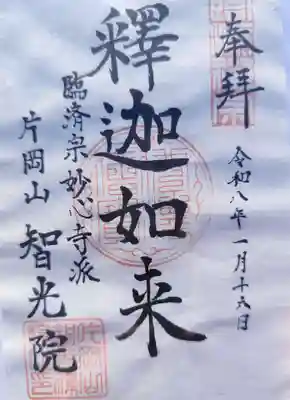 奉拝
令和八年一月十六日
釋迦如来
臨済宗妙心寺派
片岡山 智光院